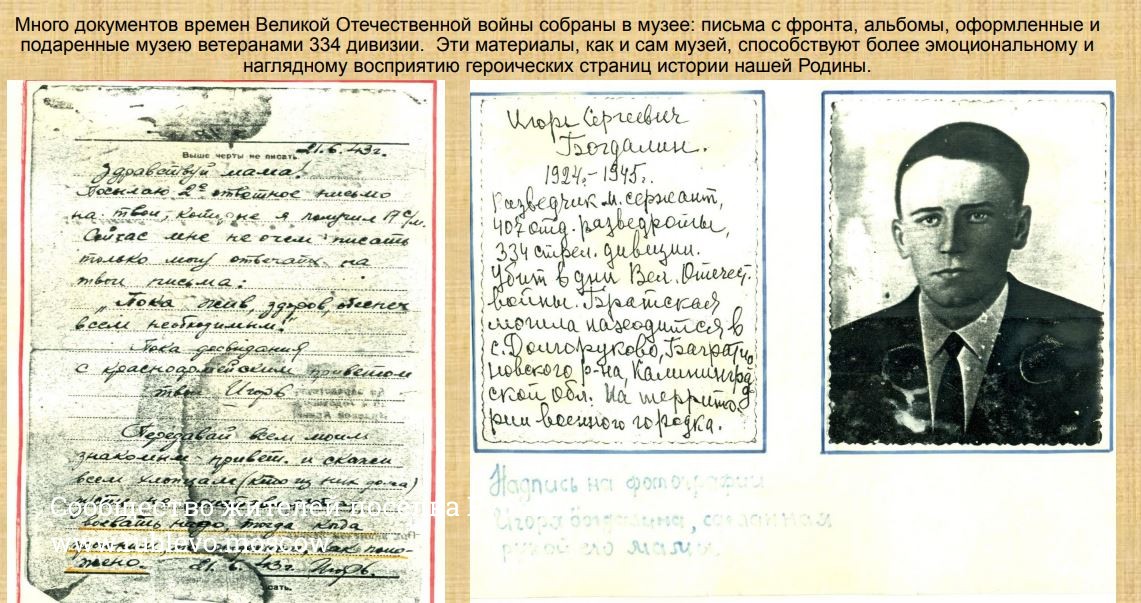 Много документов времен Великой Отечественной войны собраны в музее: письма с фронта, альбомы, оформленные и
подаренные музею ветеранами 334 дивизии. Эти материалы, как и сам музей, способствуют более эмоциональному и
наглядному восприятию героических страниц истории нашей Родины.
Выше черты не писать. 21.6.43г.
Здравствуй мама!
Посылаю 2ое ответное письмо
на твои, которые я получил 17 с/м.
Сейчас мне не о чем писать
только могу отвечать на
твои письма:
Пока жив, здоров, обеспечен
всем необходимым.
Пока до свидания
с красноармейским приветом
твой Игорь
Передавай всем моим
знакомым привет и скажи
всем хлопцам (кто из них дома)
воевать надо тогда когда
21.6.43г. Игорь.
сать.
Сообщество жителей посёлка
www.rublevo.moscow
Игорь Сергеевич
Богдалин.
1924 - 1945.
Разведчик м. сержант,
407 отд. разведроты,
334 стрел. дивизии.
Убит в дни Вел. Отечест.
войны. Братская
могила находится в
с. Долгоруково, Баграти
новского р-на, Калининград
ской обл. На террито
рии военного городка.
Надпись на фотографии
Игоря Богдалина, сделанная
рукой его мамы.